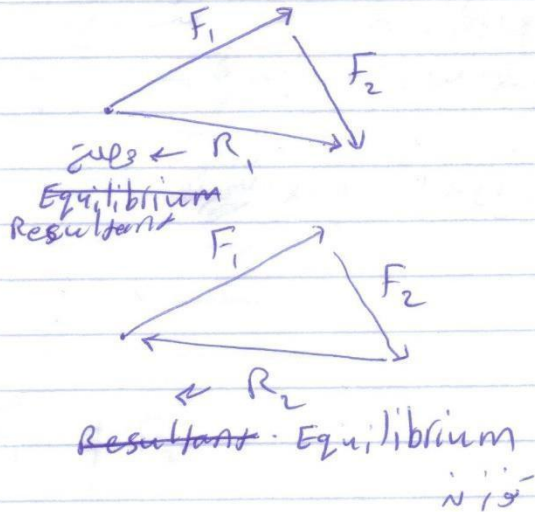 F₁
F₂
← R₁
Equilibrium
Resultant
F₁
F₂
← R₂
Resultant. Equilibrium